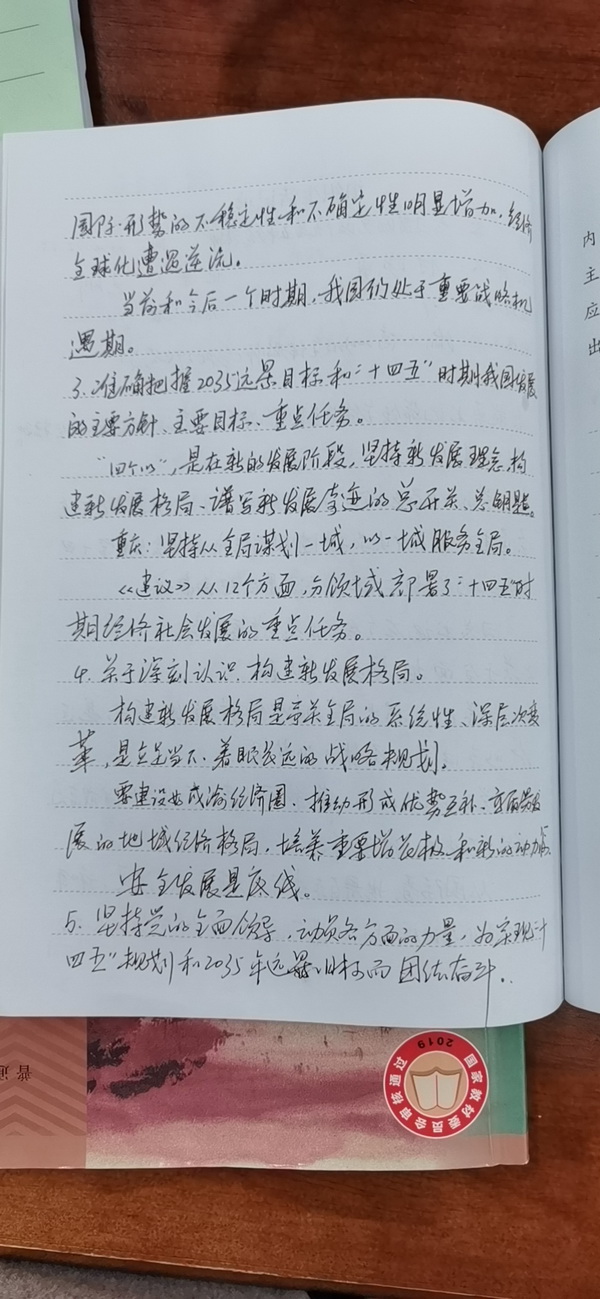 国际形势的不稳定性和不确定性明显增加,经济
全球化遭遇逆流。
当前和今后一个时期,我国仍处于重要战略机
遇期。
3.准确把握2035远景目标和“十四五”时期我国发展
的主要方针、主要目标、重点任务。
“四个以”,是在新的发展阶段,坚持新发展理念,构
建新发展格局、谱写新发展奇迹的总开关、总钥匙。
重庆:坚持从全局谋划一域,以一域服务全局。
《建议》从12个方面,分领域部署了“十四五”时
期经济社会发展的重点任务。
4.关于深刻认识构建新发展格局。
构建新发展格局是事关全局的系统性、深层次变
革,是立足当下、着眼长远的战略规划。
要建设好成渝经济圈、推动形成优势互补、高质量发
展的地域经济格局,培养重要增长极和新的动力源。
安全发展是底线。
5.坚持党的全面领导,动员各方面的力量,为实现“十
四五”规划和2035年远景目标而团结奋斗.
内
主
应
出
普通
国家教材委员会审核通过
2019